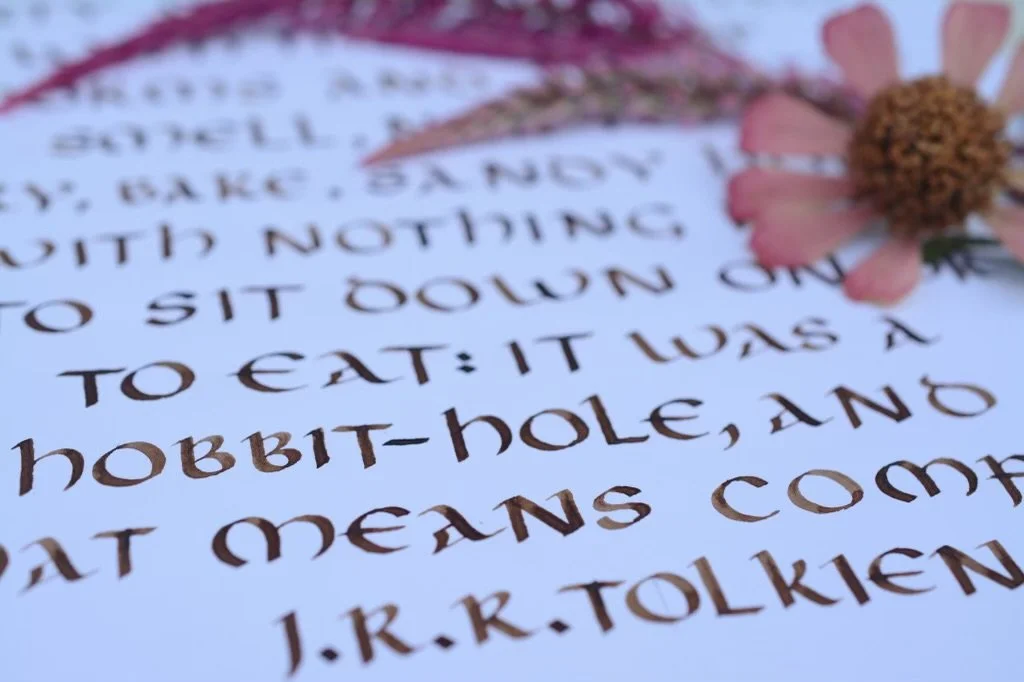 AND
SMELL,
Y, BARE, SANDY
WITH NOTHING
TO SIT DOWN ON
TO EAT: IT WAS A
HOBBIT-HOLE, AND
AT MEANS COMF
J.R.R.TOLKIEN